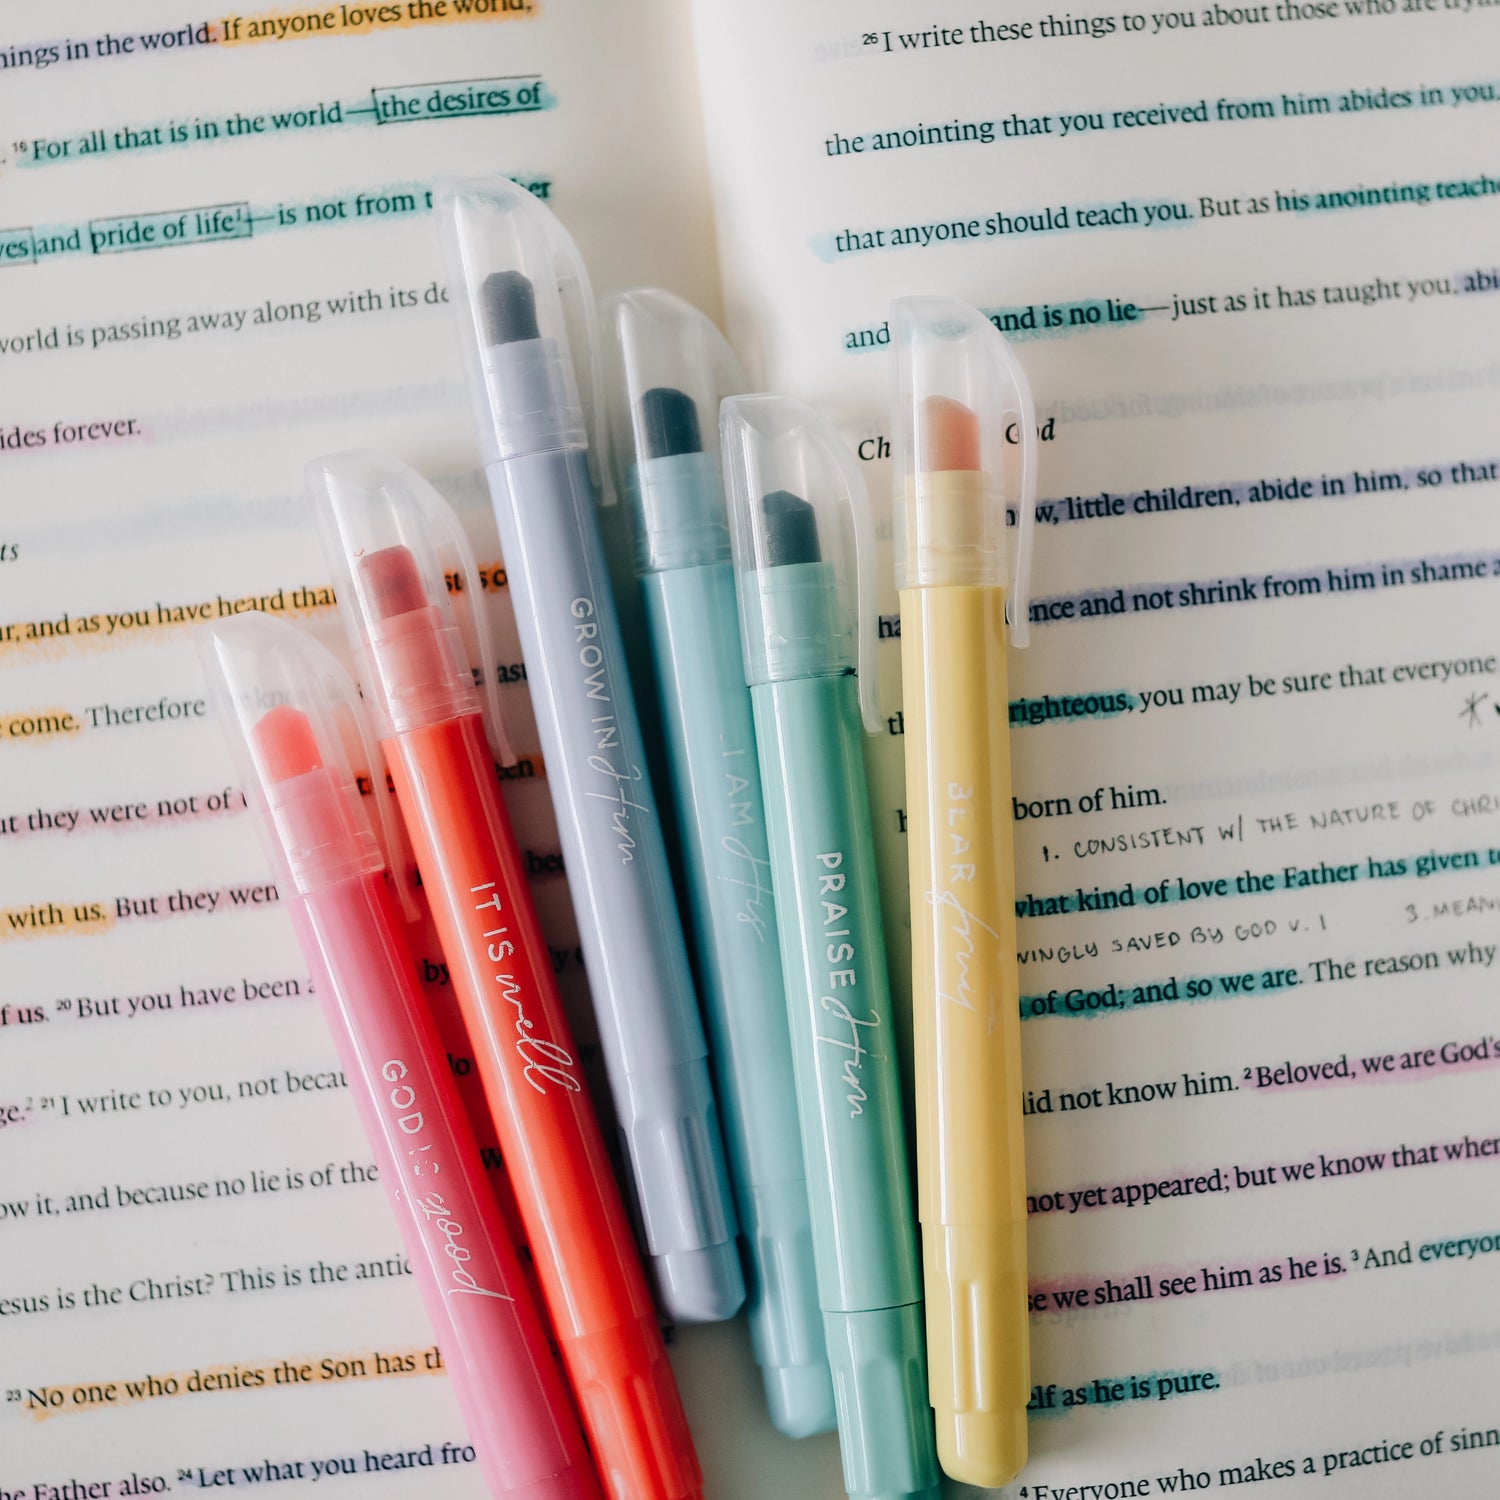 things in the world. If anyone loves the world,
16 For all that is in the world—the desires of
and pride of life1—is not from
world is passing away along with its
forever.
and as you have heard that
come. Therefore
they were not of
with us. But they
of us. 20 But you have been
2 21 I write to you, not
it, and because no lie is of the
is the Christ? This is the
23 No one who denies the Son has
Father also. 24 Let what you heard
26 I write these things to you about those who are
the anointing that you received from him abides in you,
that anyone should teach you. But as his anointing
and and is no lie—just as it has taught you,
God
little children, abide in him, so that
and not shrink from him in shame
righteous, you may be sure that everyone
born of him.
1. CONSISTENT W/ THE NATURE OF
what kind of love the Father has given
SAVED BY GOD V. 1 3.
of God; and so we are. The reason why
did not know him. 2 Beloved, we are God's
not yet appeared; but we know that when
we shall see him as he is. 3 And
as he is pure.
4 Everyone who makes a practice of
GOD IS good
IT IS well
GROW IN Him
I AM His
PRAISE Him
BEAR fruit